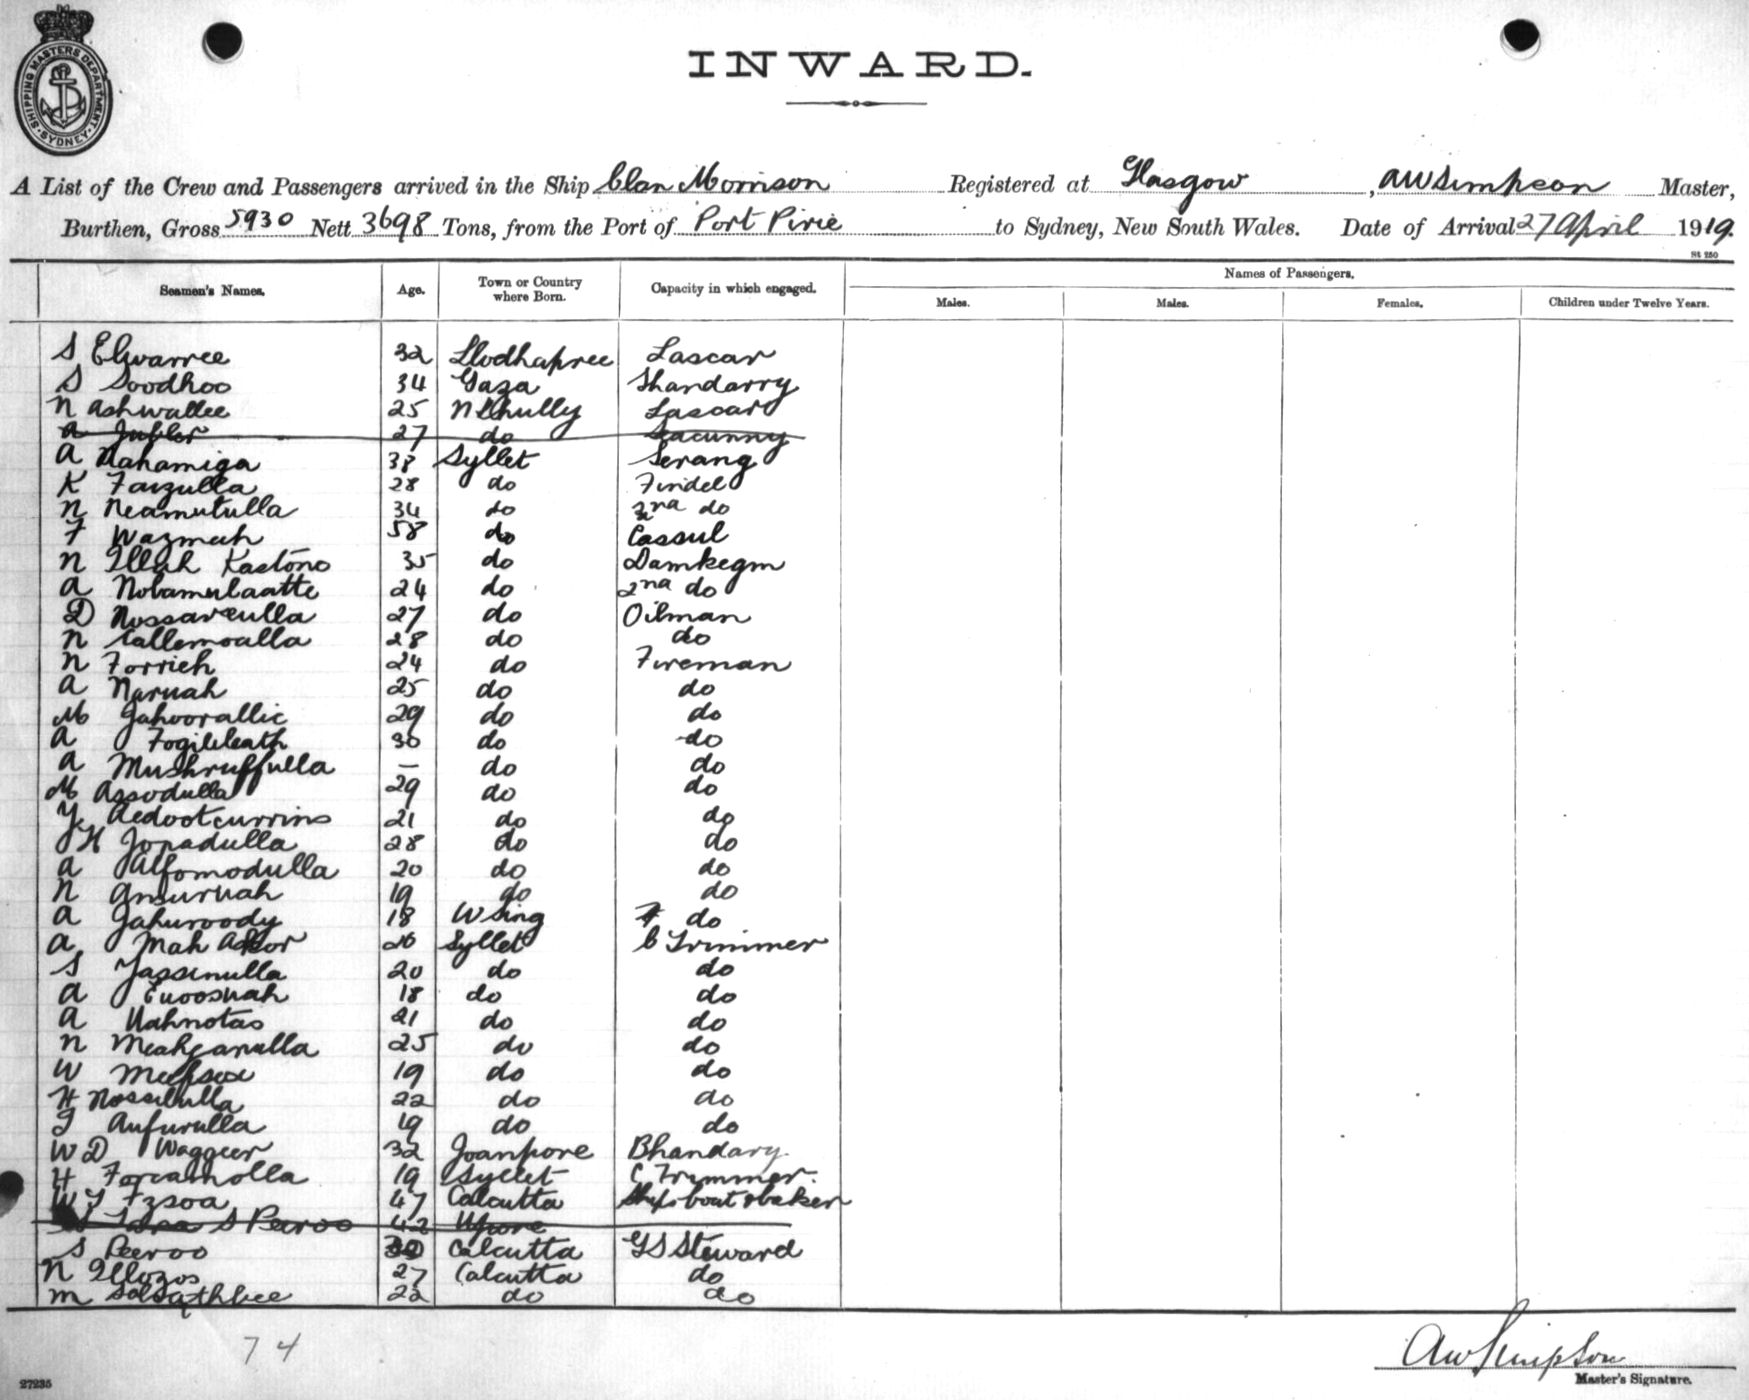 SHIPPING MASTERS DEPARTMENT · SYDNEY ·
INWARD.
A List of the Crew and Passengers arrived in the Ship Clan Morrison Registered at Glasgow, AW Simpson Master,
Burthen, Gross 5930 Nett 3698 Tons, from the Port of Port Pirie to Sydney, New South Wales. Date of Arrival 27 April 1919.
St 250
Names of Passengers.
Seamen's Names. Age. Town or Country where Born. Capacity in which engaged. Males. Males. Females. Children under Twelve Years.
S Elwarree 32 Llodhapree Lascar
S Soodhoo 34 Gaza Bhandarry
N Ashwallee 25 Lascar
27 do Seacunny
A Nahamiga 38 Syllet Serang
K Faizulla 28 do Tindel
N Neamutulla 34 do 2nd do
F Wazmuh 58 do Cassul
N Illah Kastono 35 do
A Nobamulaatte 24 do 2nd do
D Nossaraeulla 27 do Oilman
N Callemoalla 28 do do
N Forrich 24 do Fireman
A Naruah 25 do do
M Jahoorallic 29 do do
A 30 do do
A Mushruffulla — do do
M Assodulla 29 do do
Y Aedootcurrins 21 do do
H Jopadulla 28 do do
A Alfomodulla 20 do do
N Amsuruah 19 do do
A Jahuroody 18 do
A Mah 26 Syllet C Trimmer
S Yassinulla 20 do do
A Euoosuah 18 do do
A Nahnotas 21 do do
N Meahjanulla 25 do do
W 19 do do
H Nossibulla 22 do do
J Aufurulla 19 do do
W D Waggeer 32 Joanpore Bhandary
H Forcamolla 19 Syllet C Trimmer.
W J Fzsoa 47 Calcutta
S Peroo 42
S Peeroo 30 Calcutta GS Steward
N Illozos 27 Calcutta do
M 22 do do
74
AW Simpson
Master's Signature.
27235